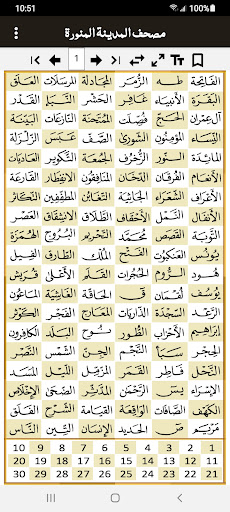 10:51 100%
مصحف المدينة المنورة
1 Tt
الفاتحة طه الزمر المجادلة المرسلات العلق
البقرة الأنبياء غافر الحشر النبأ القدر
آل عمران الحج فصلت الممتحنة النازعات البينة
النساء المؤمنون الشورى الصف عبس الزلزلة
المائدة النور الزخرف الجمعة التكوير العاديات
الأنعام الفرقان الدخان المنافقون الانفطار القارعة
الأعراف الشعراء الجاثية التغابن المطففين التكاثر
الأنفال النمل الأحقاف الطلاق الانشقاق العصر
التوبة القصص محمد التحريم البروج الهمزة
يونس العنكبوت الفتح الملك الطارق الفيل
هود الروم الحجرات القلم الأعلى قريش
يوسف لقمان ق الحاقة الغاشية الماعون
الرعد السجدة الذاريات المعارج الفجر الكوثر
إبراهيم الأحزاب الطور نوح البلد الكافرون
الحجر سبأ النجم الجن الشمس النصر
النحل فاطر القمر المزمل الليل المسد
الإسراء يس الرحمن المدثر الضحى الإخلاص
الكهف الصافات الواقعة القيامة الشرح الفلق
مريم ص الحديد الإنسان التين الناس
1 2 3 4 5 6 7 8 9 10
11 12 13 14 15 16 17 18 19 20
21 22 23 24 25 26 27 28 29 30